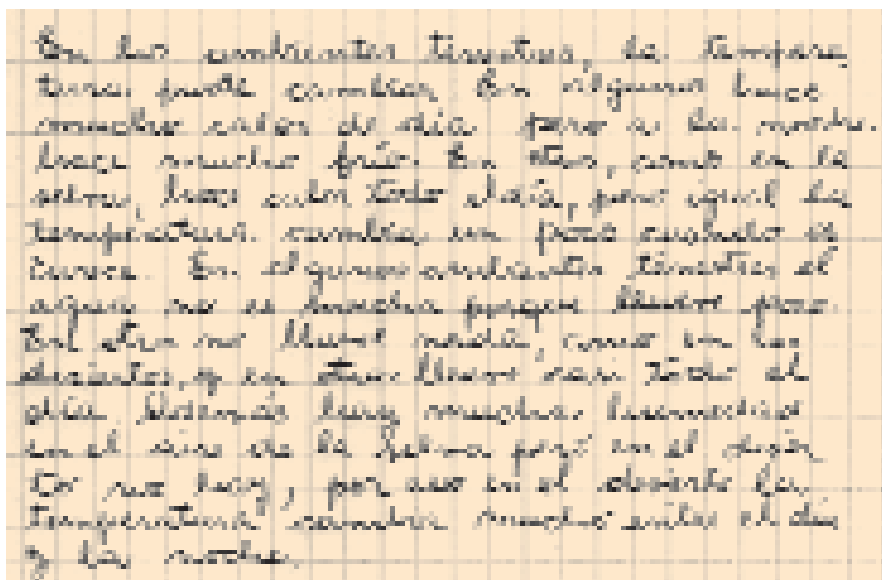 En los ambientes terrestres, la tempera
tura puede cambiar. En algunos hace
mucho calor de día pero a la noche
hace mucho frío. En otros, como en la
selva, hace calor todo el día, pero igual la
temperatura cambia un poco cuando os
curece. En algunos ambientes terrestres el
agua no es mucha porque llueve poco.
En otros no llueve nada, como en los
desiertos, y en otros llueve casi todo el
día. Además hay mucha humedad
en el aire de la selva pero en el desier
to no hay, por eso en el desierto la
temperatura cambia mucho entre el día
y la noche.